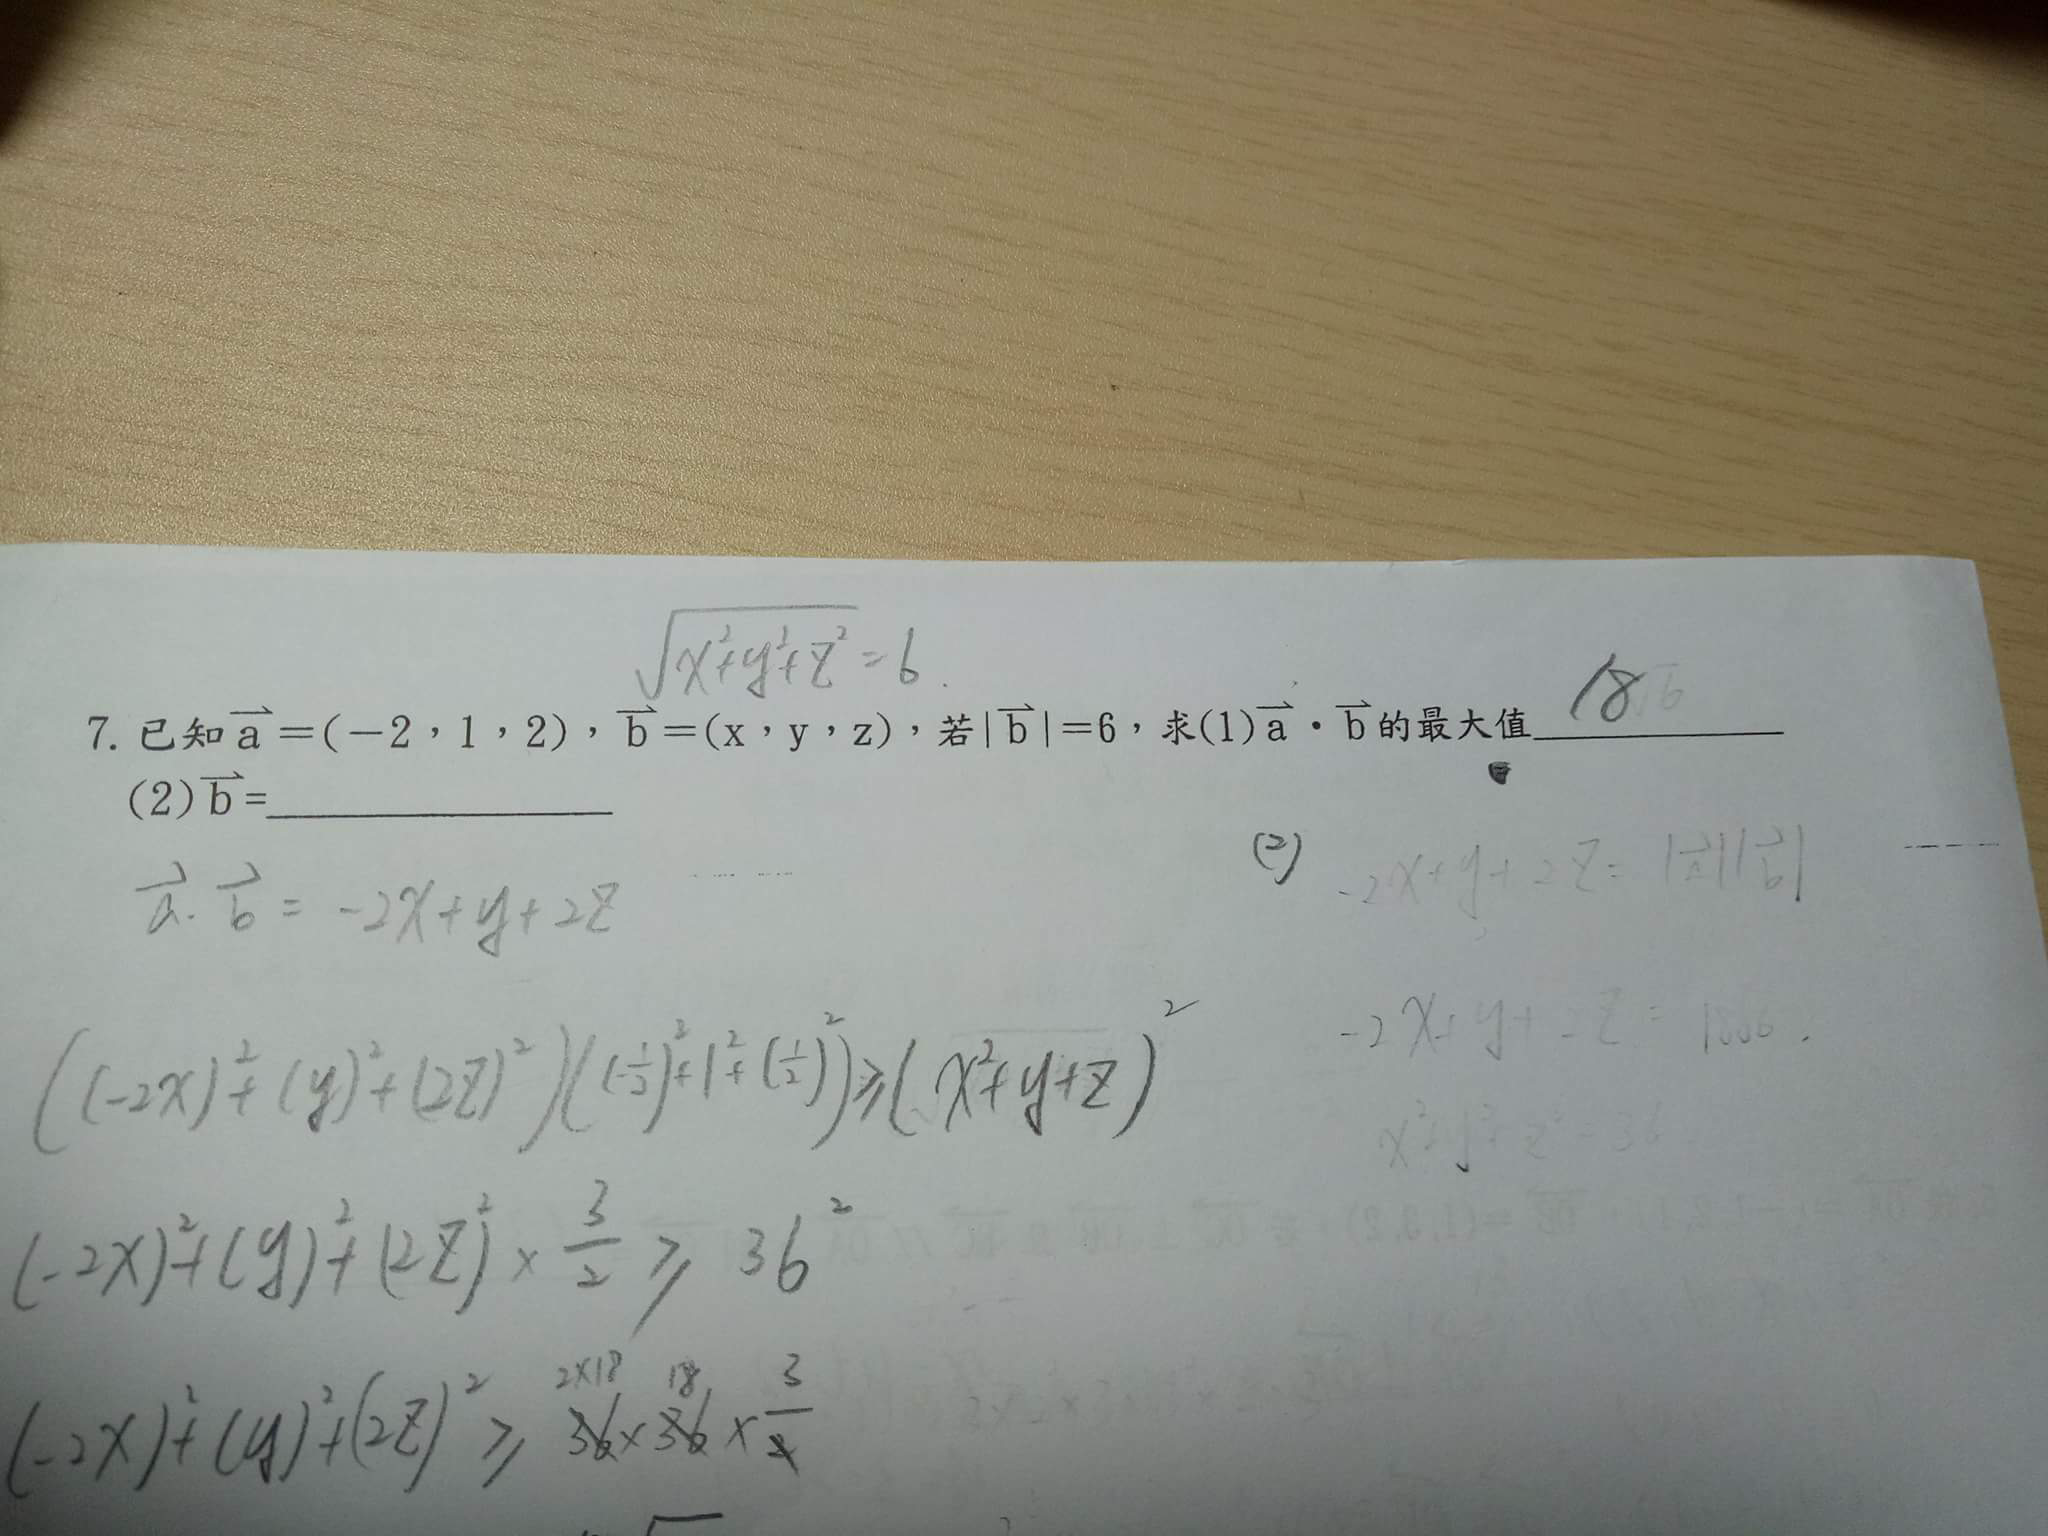 √(x²+y²+z²) = 6
18
7. 已知a⃗=(-2,1,2),b⃗=(x,y,z),若|b⃗|=6,求(1)a⃗·b⃗的最大值
(2)b⃗=
a⃗·b⃗ = -2x+y+2z
((-2x)²+(y)²+(2z)²)((-1/2)²+1²+(1/2)²)≥(x²+y+z)²
(-2x)²+(y)²+(2z)² × 3/2 ≥ 36²
2×18 18
(-2x)²+(y)²+(2z)² ≥ 36×36×3/2
(2)
-2x+y+2z = |a⃗||b⃗|
x²+y²+z²=36